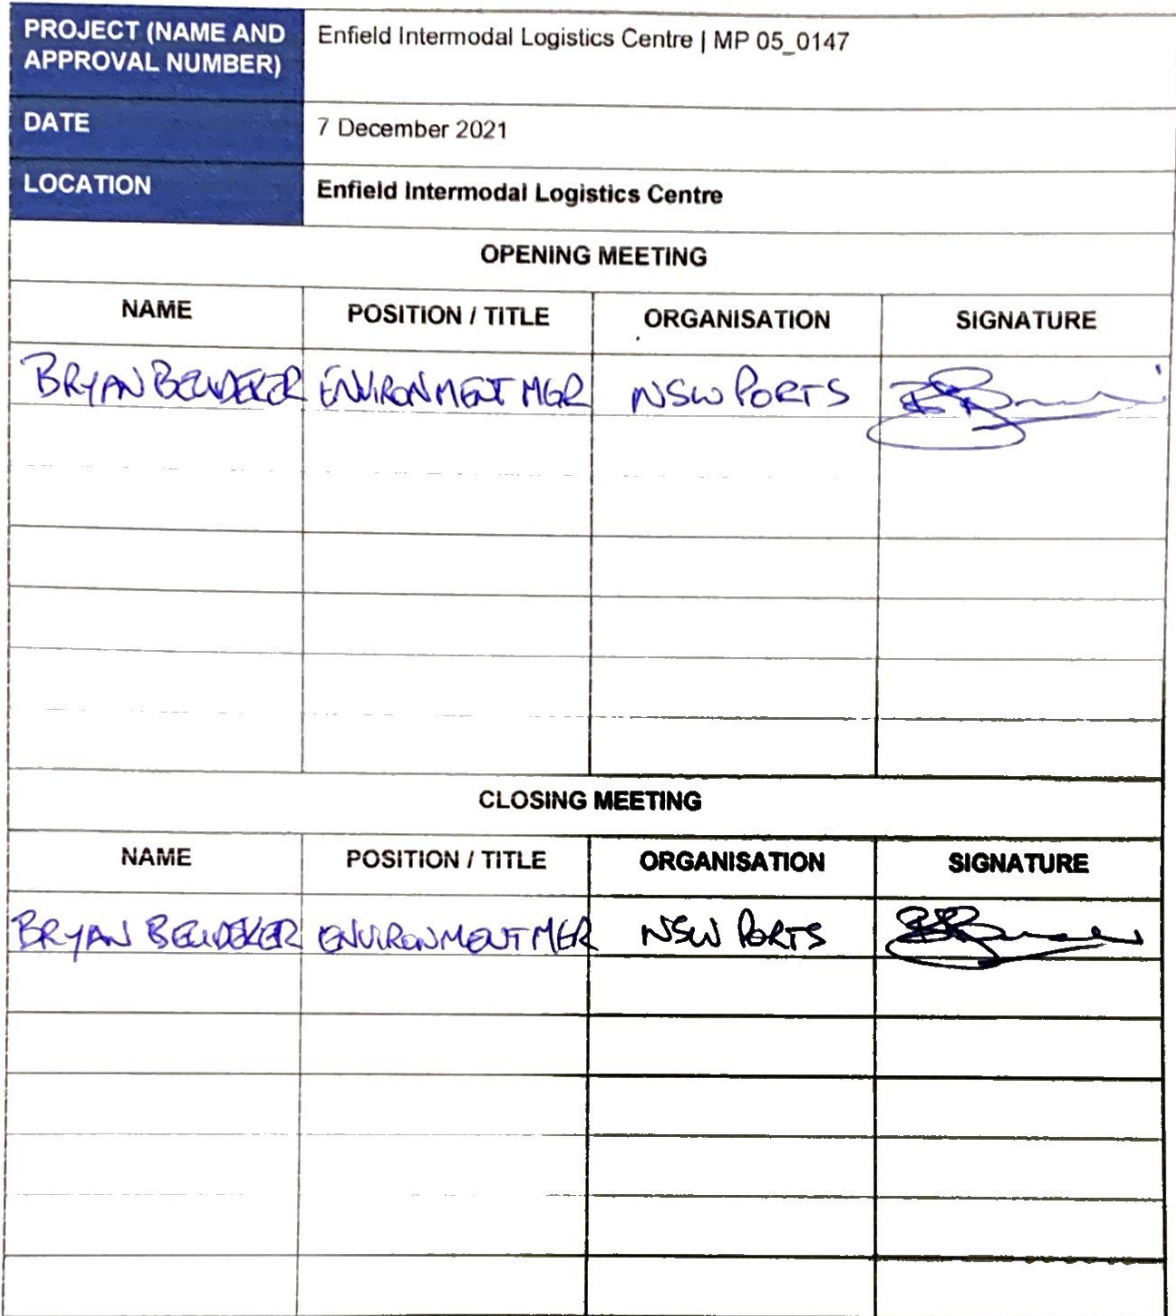 PROJECT (NAME AND APPROVAL NUMBER) Enfield Intermodal Logistics Centre | MP 05_0147
DATE 7 December 2021
LOCATION Enfield Intermodal Logistics Centre
OPENING MEETING
NAME POSITION / TITLE ORGANISATION SIGNATURE
BRYAN BEUDEKER ENVIRONMENT MGR NSW PORTS
CLOSING MEETING
NAME POSITION / TITLE ORGANISATION SIGNATURE
BRYAN BEUDEKER ENVIRONMENT MGR NSW PORTS